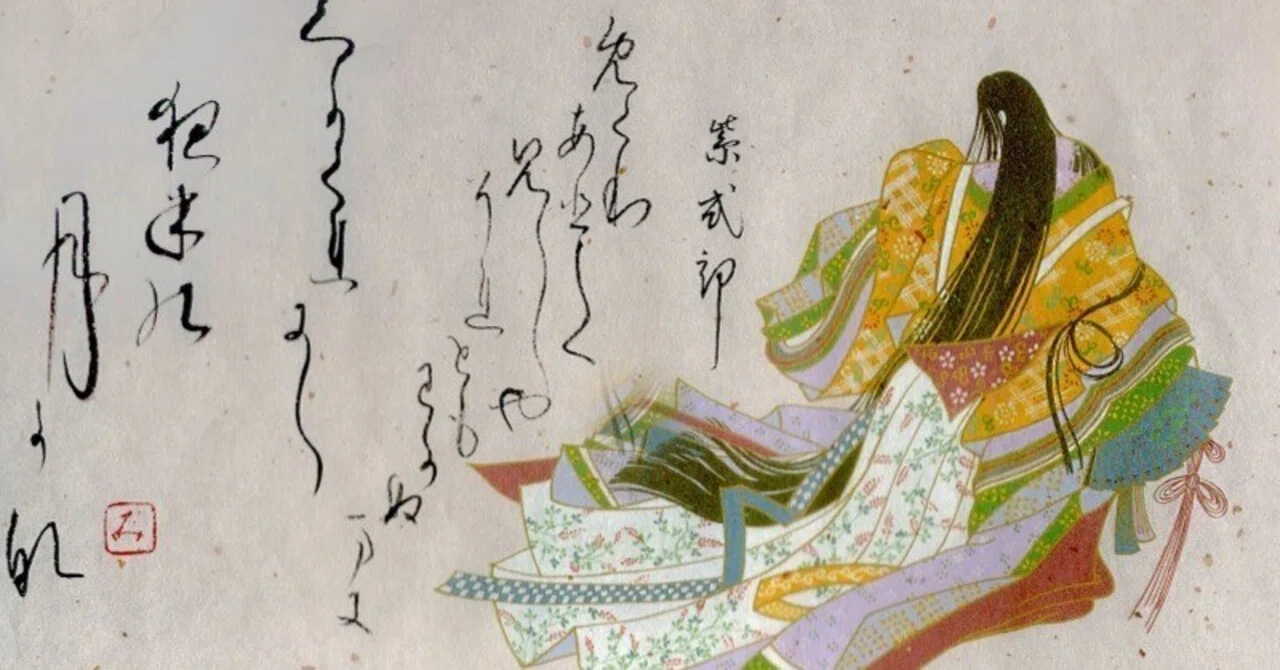 紫式部
免くり
あひて
見し也
それとも
わかぬ
万に
くもかくれ
にし
夜半の
月か那
み